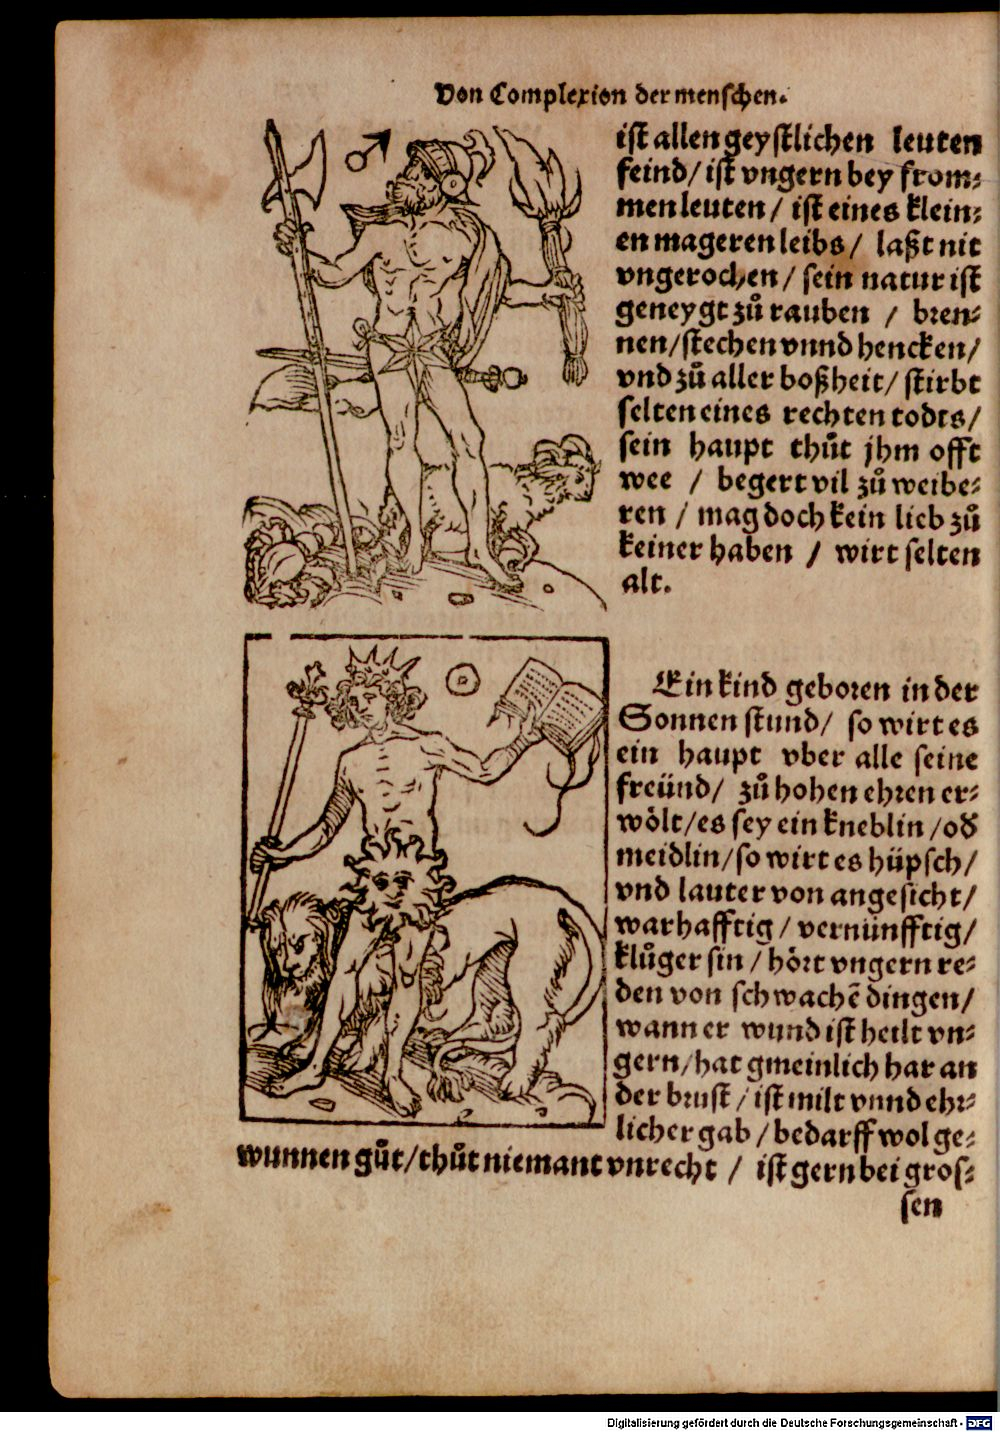 Von Complexion der menschen.
ist allen geystlichen leuten
feind/ ist vngern bey from⸗
men leuten / ist eines klein⸗
en mageren leibs / laßt nit
vngerochen / sein natur ist
geneygt zů rauben / bren⸗
nen/stechen vnnd hencken/
vnd zů aller boßheit/ stirbt
selten eines rechten todts/
sein haupt thůt jhm offt
wee / begert vil zů weibe⸗
ren / mag doch kein lieb zů
keiner haben / wirt selten
alt.
Ein kind geboren in der
Sonnen stund/ so wirt es
ein haupt vber alle seine
freünd/ zů hohen ehren er⸗
wölt/es sey ein kneblin /od
meidlin/so wirt es hüpsch/
vnd lauter von angesicht/
warhafftig / vernünfftig/
klůger sin / hört vngern re⸗
den von schwachē dingen/
wann er wund ist heilt vn⸗
gern/hat gmeinlich har an
der brust / ist milt vnnd ehr⸗
licher gab / bedarff wol ge⸗
wunnen gůt/thůt niemant vnrecht / ist gern bei gros⸗
sen
Digitalisierung gefördert durch die Deutsche Forschungsgemeinschaft - DFG